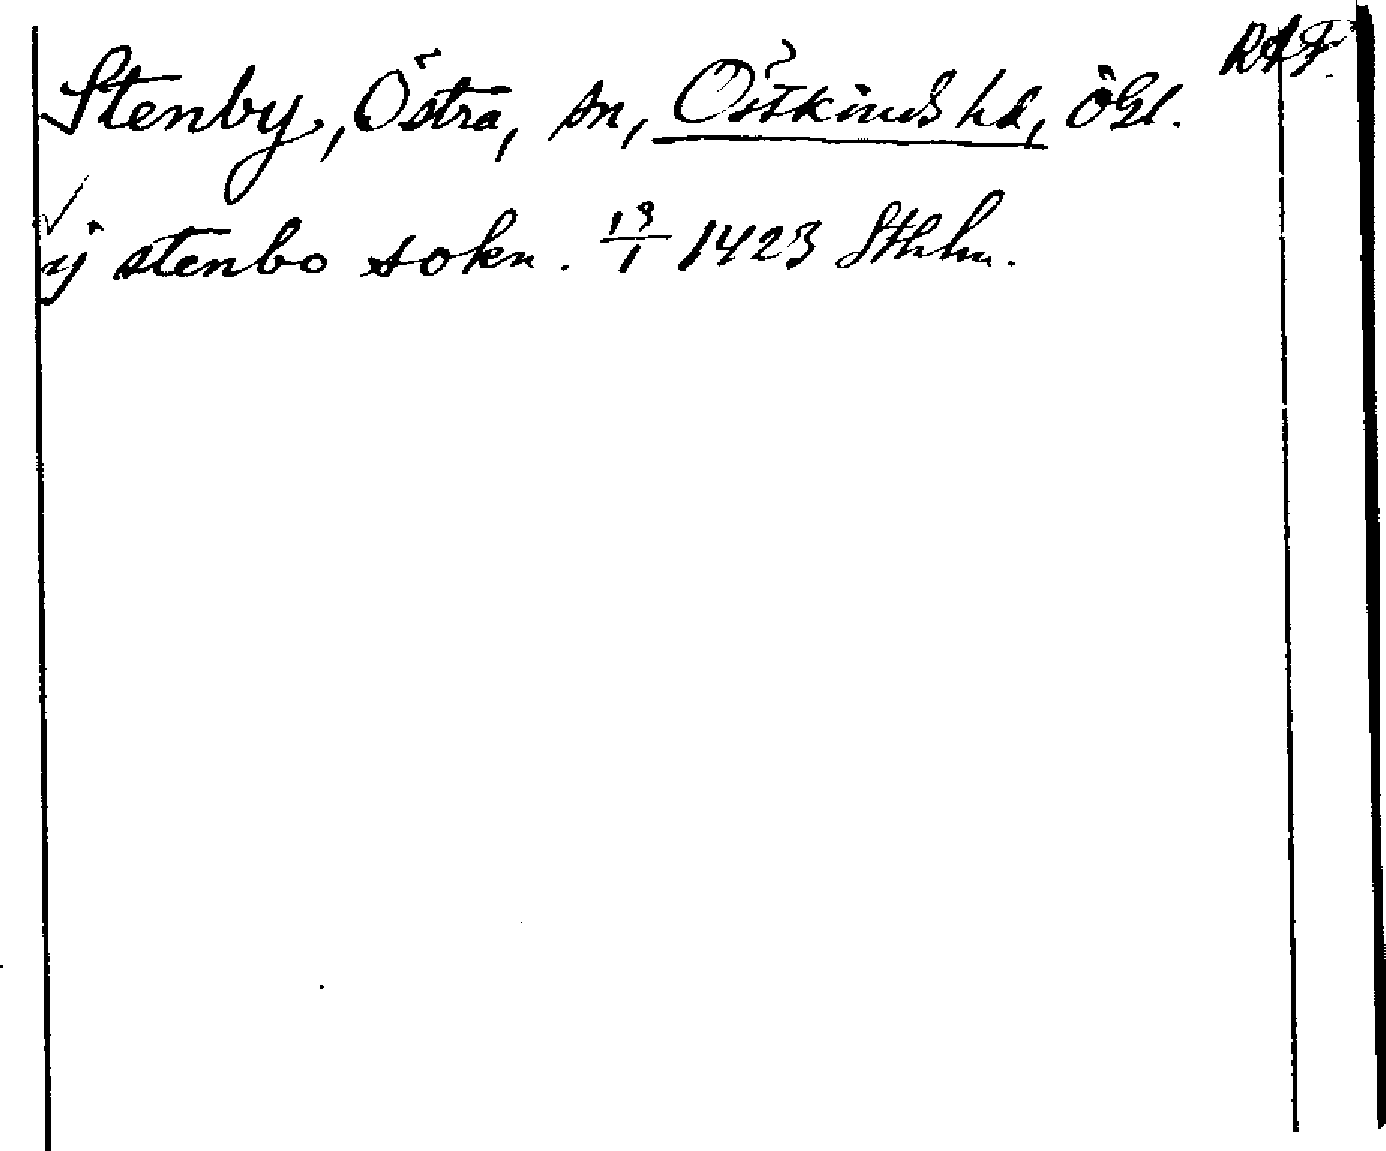 RAP.
Stenby, Östra, sn, Östkinds hd, Ögl.
ij stenbo sokn. 13/1 1423 Sthlm.